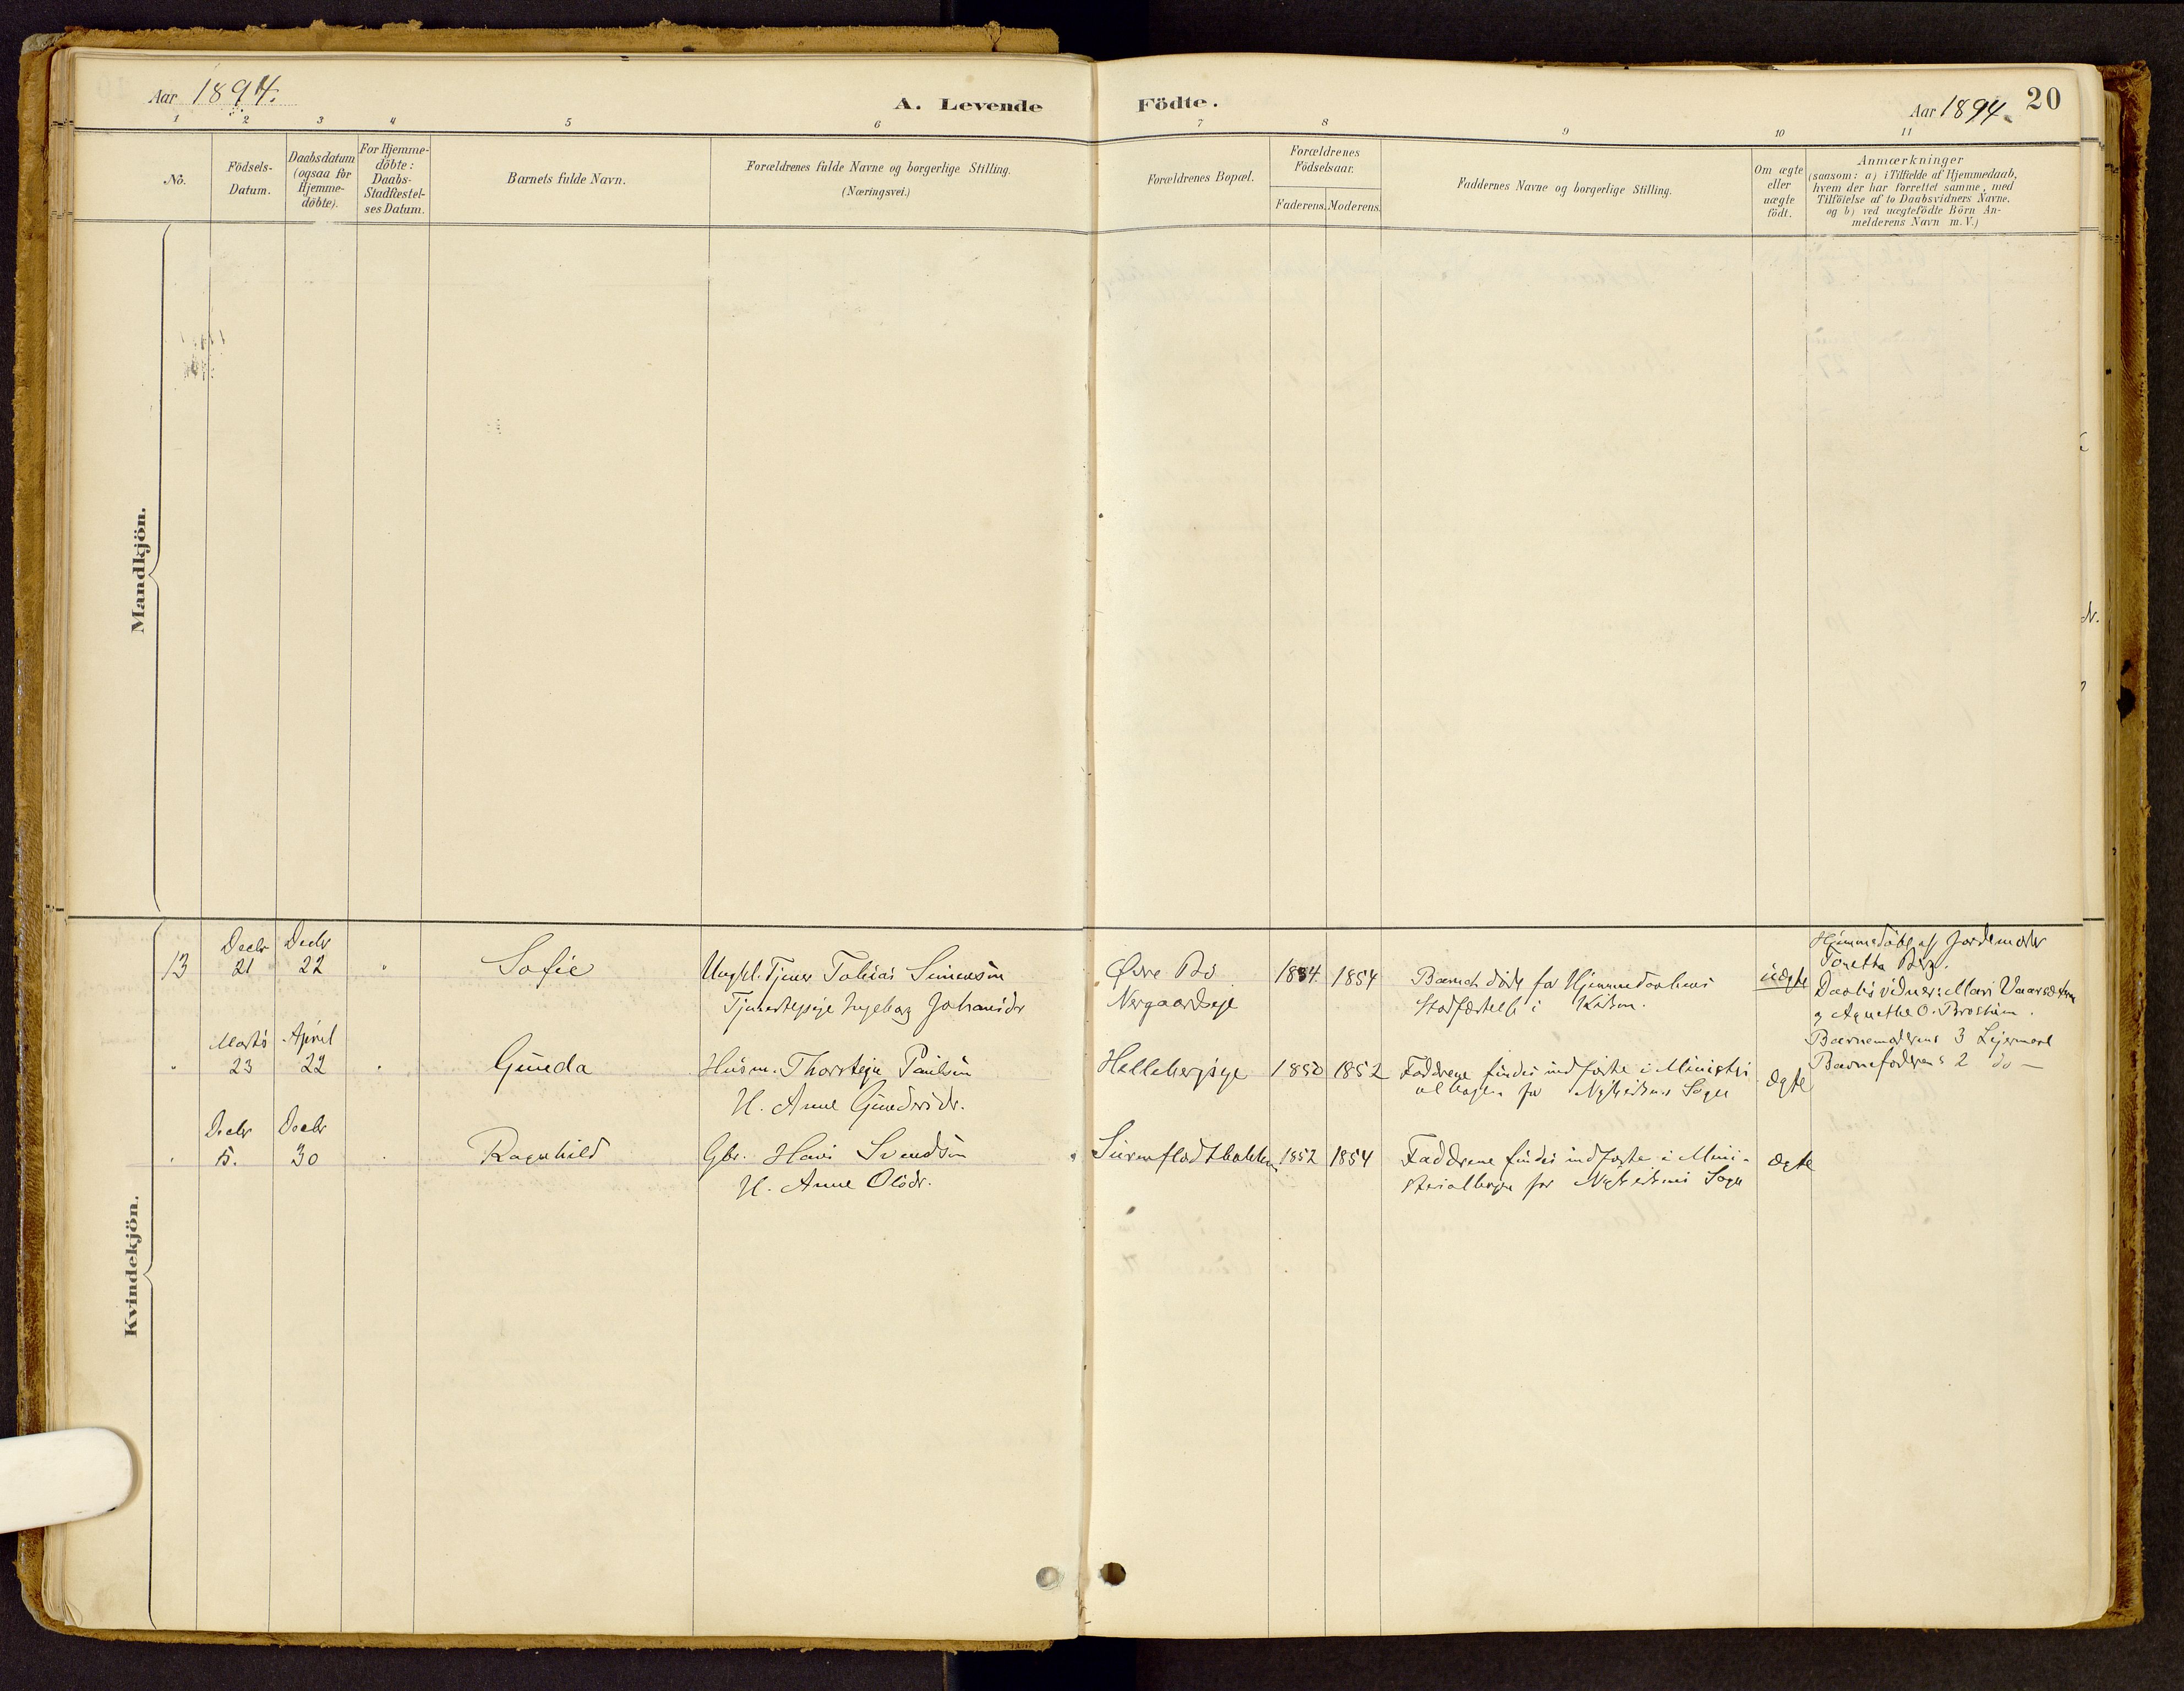 Aar 1894.
A. Levende
Födte.
Aar 1894.
20
1 2 3 4 5 6 7 8 9 10 11
No.
Födsels-
Datum.
Daabsdatum
(ogsaa for
Hjemme-
döbte).
For Hjemme-
döbte:
Daabs-
Stadfæstel-
ses Datum.
Barnets fulde Navn.
Forældrenes fulde Navne og borgerlige Stilling.
(Næringsvei.)
Forældrenes Bopæl.
Forældrenes
Födselsaar.
Faderens. Moderens.
Faddernes Navne og borgerlige Stilling.
Om ægte
eller
uægte
födt.
Anmærkninger
(saasom: a) i Tilfælde af Hjemmedaab,
hvem der har forrettet samme, med
Tilföielse af to Daabsvidners Navne.
og b) ved uægtefödte Börn An-
melderens Navn m. V.)
Mandkjön.
Kvindekjön.
13
Decbr
21
Decbr
22
Sofie
Ungkl. Tjener Tobias Simensön
Tjenestepige Ingeborg Johansdr
Øvre Bö
Nergaardseje
1854
Barnet döde før Hjemmedaabens
Stadfæstelse i Kirken.
uægte
Hjemmedöbt af Jordemoder
Berg.
Daabsvidner: Mari
og Agnethe O.
Barnemoderens 3 Lejermaal
Barnefaderens 2 do —
Marts
23
April
22
Gunda
Husm. Thorstejn Paulsön
H. Anne Gundersdr.
Hellebergseje
1850 1852
Faddrene findes indførte i Ministeri
albogen for Sogn
ægte
Decbr
5.
Decbr
30
Ragnhild
Gbr. Hans Svendsön
H. Anne Olsdr.
1852 1854
Faddrene findes indførte i Mini-
sterialbogen for Sogn
ægte